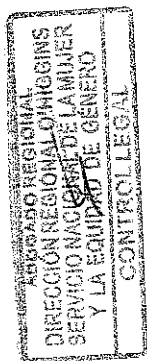 ABOGADO REGIONAL
DIRECCIÓN REGIONAL O'HIGGINS
SERVICIO NACIONAL DE LA MUJER
Y LA EQUIDAD DE GÉNERO
CONTROL LEGAL